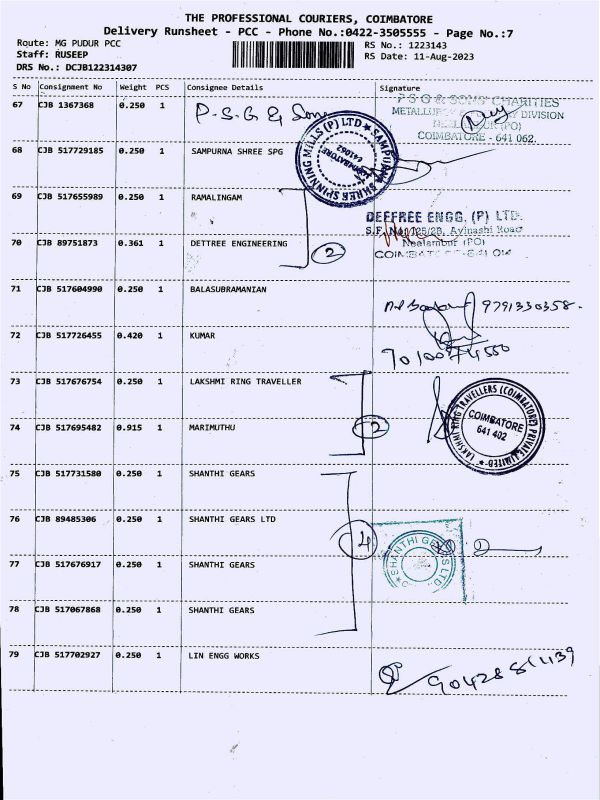 THE PROFESSIONAL COURIERS, COIMBATORE
Delivery Runsheet - PCC - Phone No.:0422-3505555 - Page No.:7
Route: MG PUDUR PCC
RS No.: 1223143
Staff: RUSEEP
RS Date: 11-Aug-2023
DRS No.: DCJB122314307
S No Consignment No Weight PCS Consignee Details Signature
67 CJB 1367368 0.250 1 P.S.G & Sons
P S G & SONS CHARITIES
METALLURGY DIVISION
(PO)
COIMBATORE - 641 062.
68 CJB 517729185 0.250 1 SAMPURNA SHREE SPG
SAMPURNA SHREE SPINNING MILLS (P) LTD
COIMBATORE
641062
69 CJB 517655989 0.250 1 RAMALINGAM
DEFFREE ENGG. (P) LTD.
S.F. No. 125/2B, Avinashi Road
Neelambur (PO)
70 CJB 89751873 0.361 1 DETTREE ENGINEERING
2
71 CJB 517604990 0.250 1 BALASUBRAMANIAN
9791330358.
72 CJB 517726455 0.420 1 KUMAR
7010074550
73 CJB 517676754 0.250 1 LAKSHMI RING TRAVELLER
74 CJB 517695482 0.915 1 MARIMUTHU
2
LAKSHMI RING TRAVELLERS (COIMBATORE) PRIVATE LIMITED
COIMBATORE
641 402
75 CJB 517731580 0.250 1 SHANTHI GEARS
76 CJB 89485306 0.250 1 SHANTHI GEARS LTD
4
SHANTHI GEARS LTD.,
77 CJB 517676917 0.250 1 SHANTHI GEARS
78 CJB 517067868 0.250 1 SHANTHI GEARS
79 CJB 517702927 0.250 1 LIN ENGG WORKS